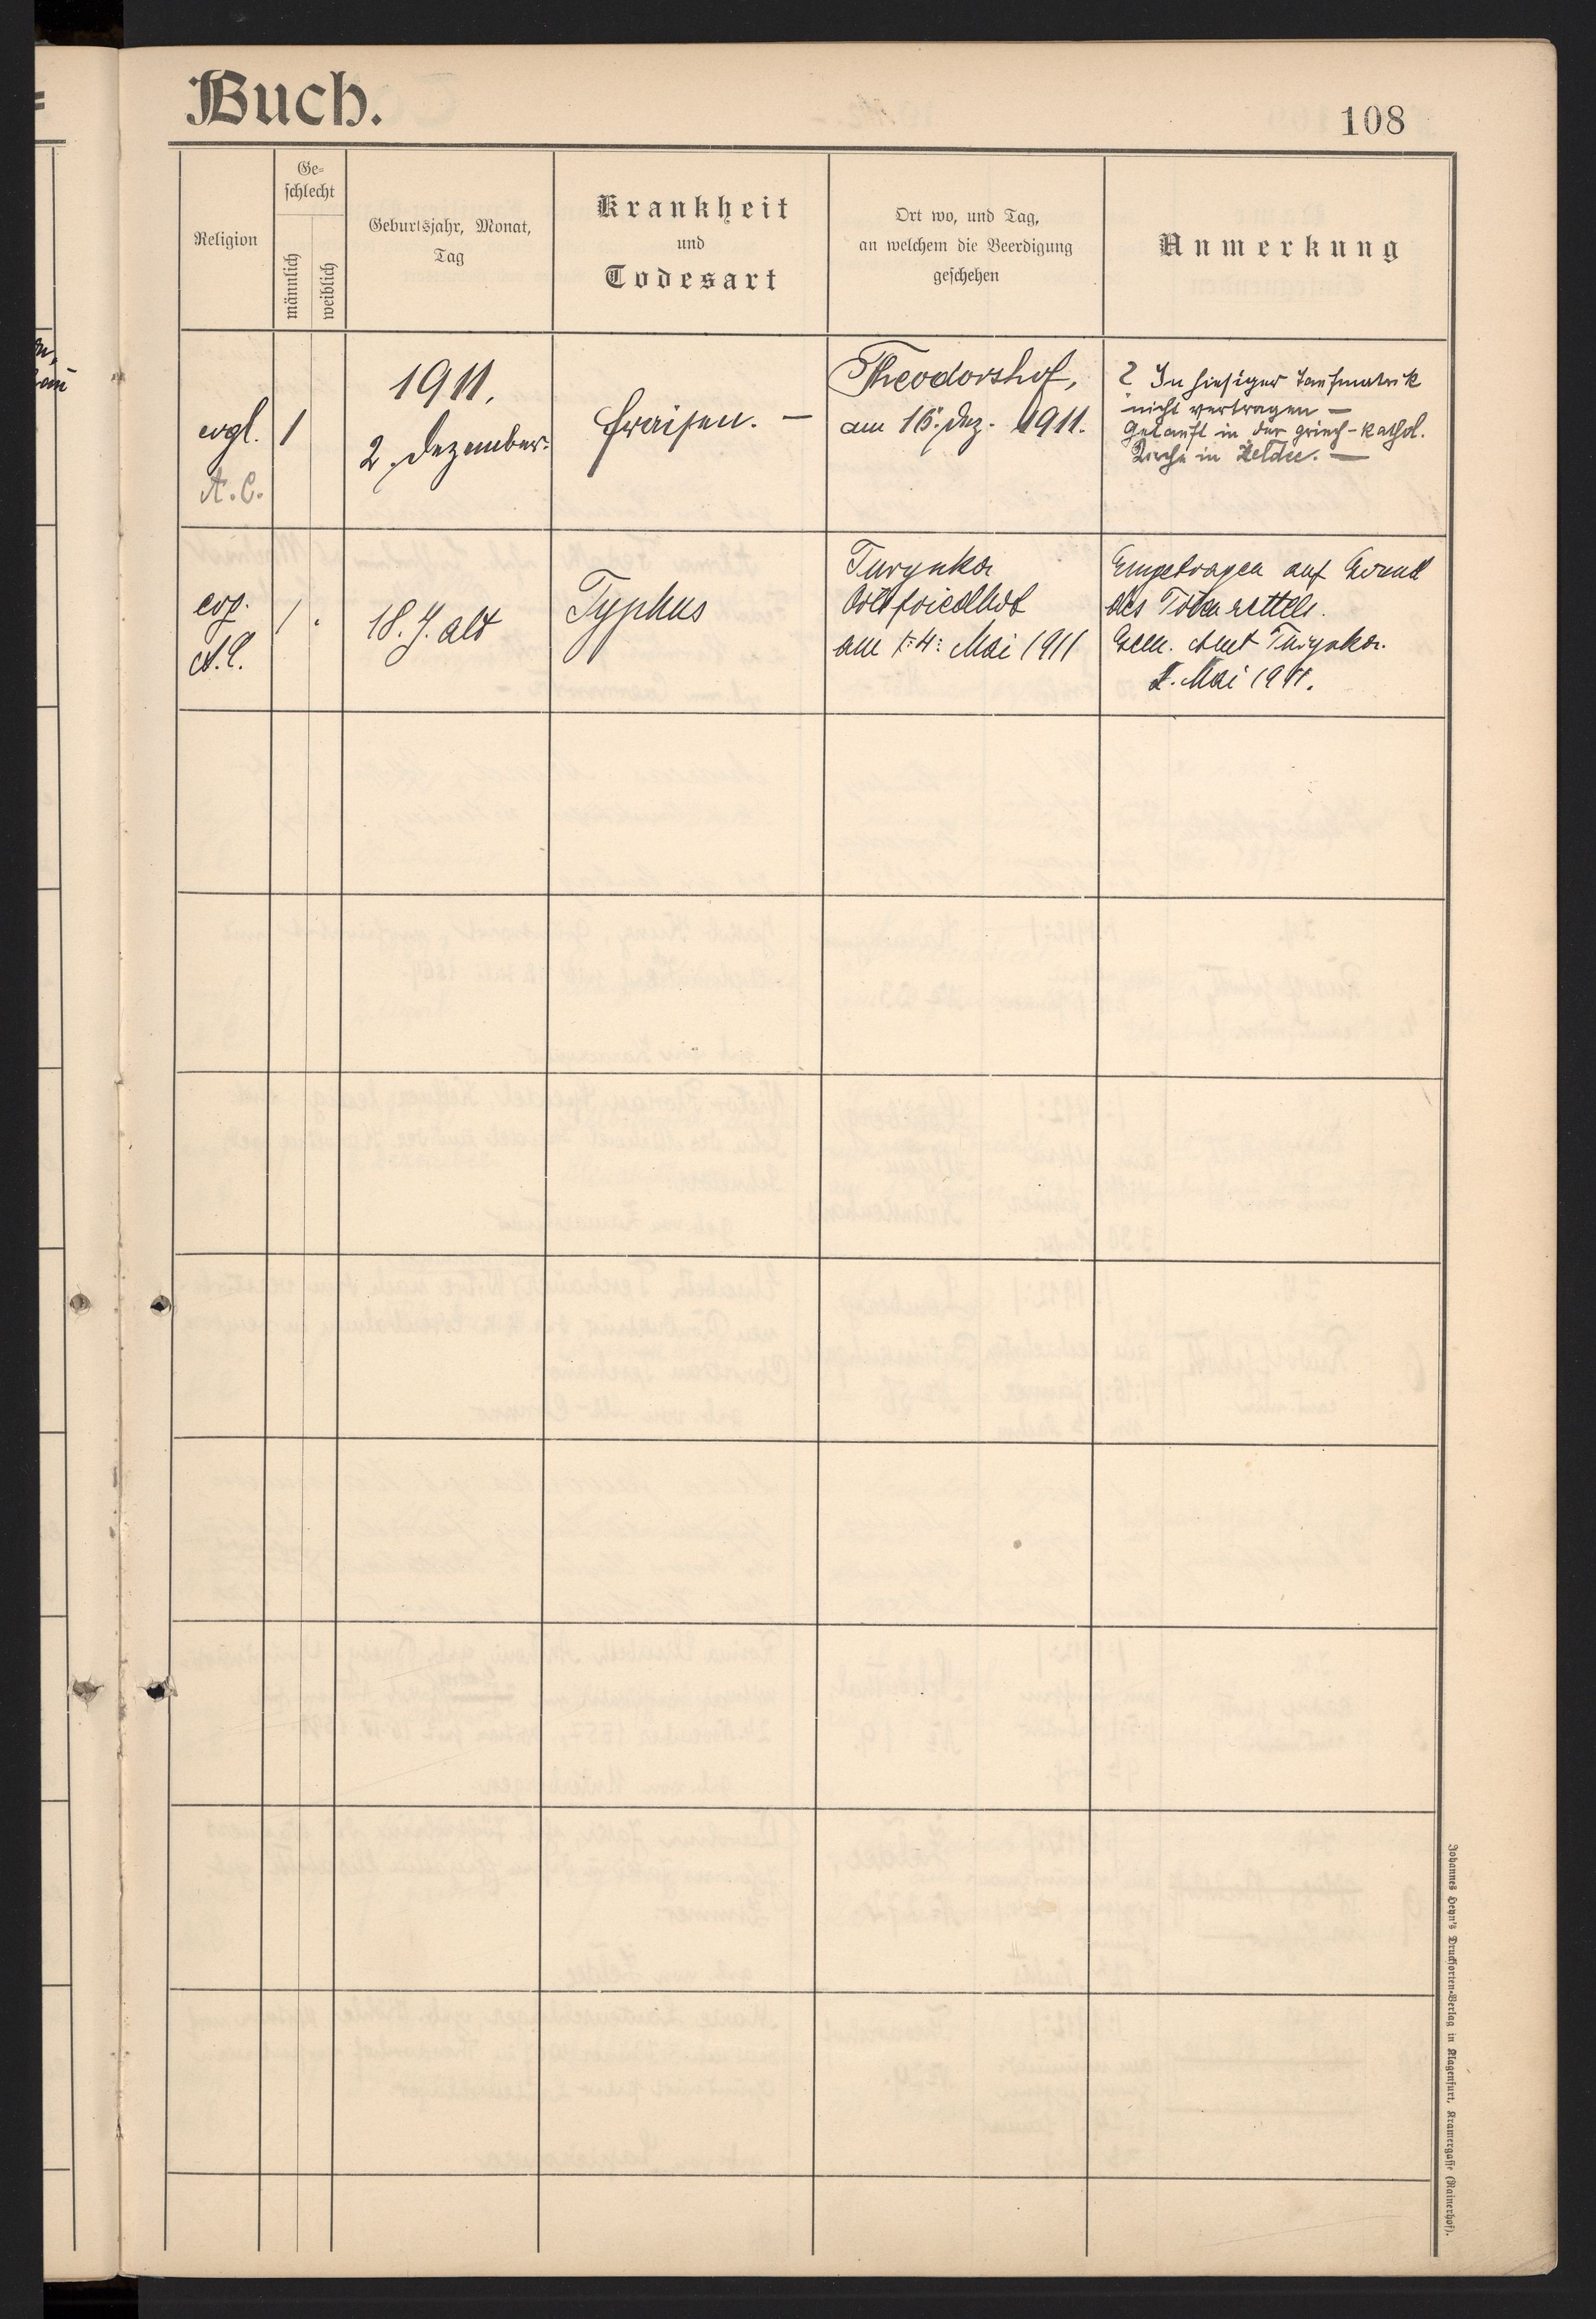 Buch.
108
Religion
Ge-
schlecht
männlich
weiblich
Geburtsjahr, Monat,
Tag
Krankheit
und
Todesart
Ort wo, und Tag,
an welchem die Beerdigung
geschehen
Anmerkung
evgl.
A.C.
1
1911.
2. Dezember.
Fraisen. —
Theodorshof,
am 16. Dez. 1911.
In hiesiger Taufmatrik
nicht vertragen —
Getauft in der griech-kathol.
Kirche in Zeldec. —
evg.
A.C.
1
18. J. alt
Typhus
Turynka
Ortsfriedhof
am 4: Mai 1911
Eingetragen auf Grund
des
Gem. Amt Turynka.
2. Mai 1911.
Johannes Heyn's Drucksorten-Verlag in Klagenfurt, Kramergasse (Rainerhof).